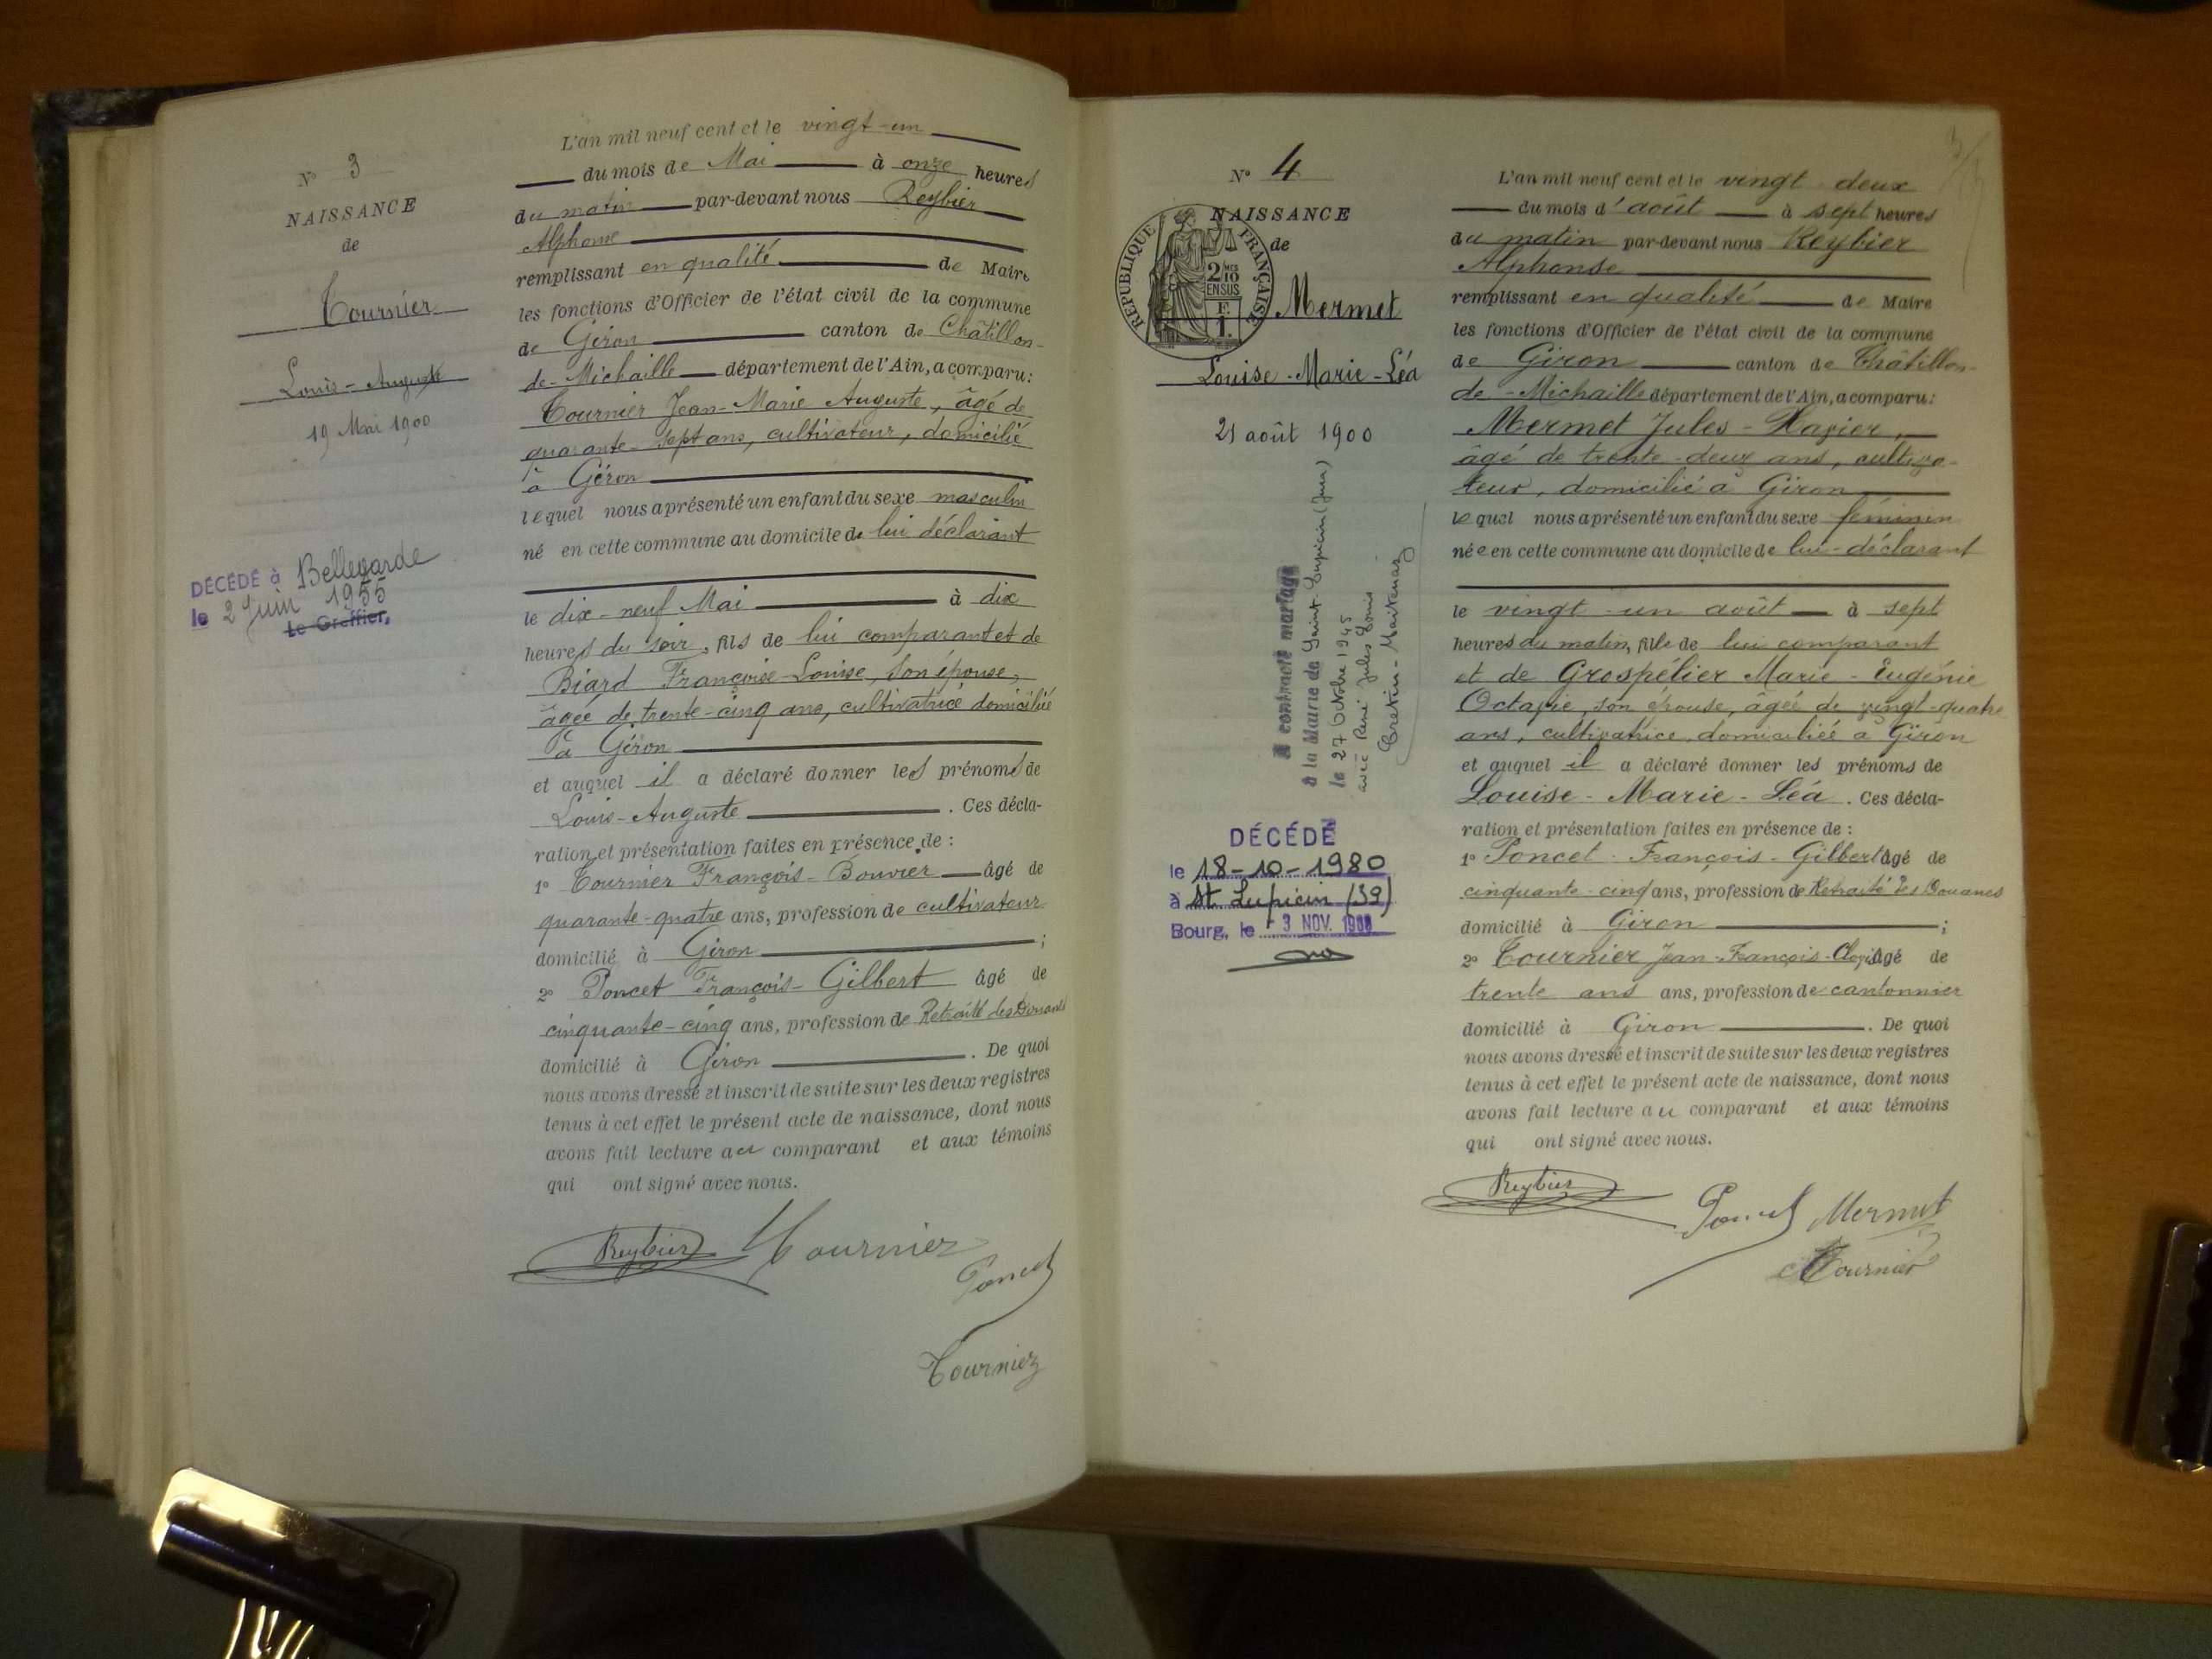 N° 3
NAISSANCE
de
Tournier
Louis-Auguste
19 Mai 1900
DÉCÉDÉ à Bellegarde
le 2 Juin 1955
Le Greffier,
L'an mil neuf cent et le vingt-un
du mois de Mai à onze heures
du matin par-devant nous Reybier
Alphonse
remplissant en qualité de Maire
les fonctions d'Officier de l'état civil de la commune
de Giron canton de Châtillon-
de-Michaille département de l'Ain, a comparu:
Tournier Jean-Marie Auguste, âgé de
quarante-sept ans, cultivateur, domicilié
à Giron
lequel nous a présenté un enfant du sexe masculin
né en cette commune au domicile de lui déclarant
le dix-neuf Mai à dix
heures du soir, fils de lui comparant et de
Biard Françoise-Louise, son épouse,
âgée de trente-cinq ans, cultivatrice domiciliée
à Giron
et auquel il a déclaré donner les prénoms de
Louis-Auguste. Ces décla-
ration et présentation faites en présence de :
1° Tournier François-Bouvier âgé de
quarante-quatre ans, profession de cultivateur
domicilié à Giron ;
2° Poncet François-Gilbert âgé de
cinquante-cinq ans, profession de Retraité des Douanes
domicilié à Giron. De quoi
nous avons dressé et inscrit de suite sur les deux registres
tenus à cet effet le présent acte de naissance, dont nous
avons fait lecture au comparant et aux témoins
qui ont signé avec nous.
Reybier Tournier
Poncet
Tournier
N° 4
NAISSANCE
de
RÉPUBLIQUE FRANÇAISE
2/10
EN SUS
F.
1.
Mermet
Louise-Marie-Léa
21 août 1900
A contracté mariage
à la Mairie de Saint-Lupicin (Jura)
le 27 Octobre 1945
avec René Jules Louis
Cretin-Maitenaz
DÉCÉDÉE
le 18-10-1980
à St Lupicin (39)
Bourg, le - 3 NOV. 1980
L'an mil neuf cent et le vingt deux
du mois d'août à sept heures
du matin par-devant nous Reybier
Alphonse
remplissant en qualité de Maire
les fonctions d'Officier de l'état civil de la commune
de Giron canton de Châtillon-
de-Michaille département de l'Ain, a comparu:
Mermet Jules-Xavier,
âgé de trente-deux ans, cultiva-
teur, domicilié à Giron
lequel nous a présenté un enfant du sexe féminin
née en cette commune au domicile de lui-déclarant
le vingt-un août à sept
heures du matin, fille de lui comparant
et de Grospélier Marie-Eugénie
Octavie, son épouse, âgée de vingt-quatre
ans, cultivatrice, domiciliée à Giron
et auquel il a déclaré donner les prénoms de
Louise-Marie-Léa. Ces décla-
ration et présentation faites en présence de :
1° Poncet François-Gilbert âgé de
cinquante-cinq ans, profession de Retraité des Douanes
domicilié à Giron ;
2° Tournier Jean-François- âgé de
trente ans ans, profession de cantonnier
domicilié à Giron. De quoi
nous avons dressé et inscrit de suite sur les deux registres
tenus à cet effet le présent acte de naissance, dont nous
avons fait lecture au comparant et aux témoins
qui ont signé avec nous.
Reybier Poncet Mermet
Tournier